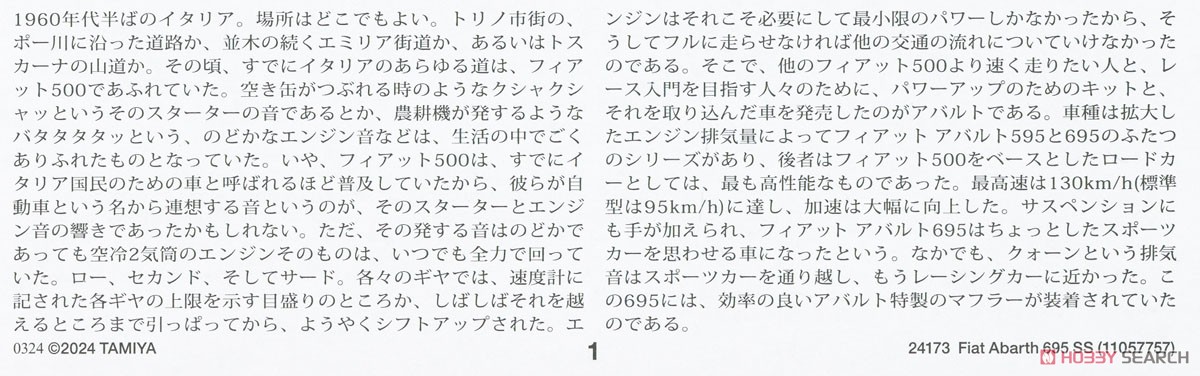 1960年代半ばのイタリア。場所はどこでもよい。トリノ市街の、
ポー川に沿った道路か、並木の続くエミリア街道か、あるいはトス
カーナの山道か。その頃、すでにイタリアのあらゆる道は、フィア
ット500であふれていた。空き缶がつぶれる時のようなクシャクシ
ャッというそのスターターの音であるとか、農耕機が発するような
バタタタタッという、のどかなエンジン音などは、生活の中でごく
ありふれたものとなっていた。いや、フィアット500は、すでにイ
タリア国民のための車と呼ばれるほど普及していたから、彼らが自
動車という名から連想する音というのが、そのスターターとエンジ
ン音の響きであったかもしれない。ただ、その発する音はのどかで
あっても空冷2気筒のエンジンそのものは、いつでも全力で回って
いた。ロー、セカンド、そしてサード。各々のギヤでは、速度計に
記された各ギヤの上限を示す目盛りのところか、しばしばそれを越
えるところまで引っぱってから、ようやくシフトアップされた。エ
ンジンはそれこそ必要にして最小限のパワーしかなかったから、そ
うしてフルに走らせなければ他の交通の流れについていけなかった
のである。そこで、他のフィアット500より速く走りたい人と、レ
ース入門を目指す人々のために、パワーアップのためのキットと、
それを取り込んだ車を発売したのがアバルトである。車種は拡大し
たエンジン排気量によってフィアット アバルト595と695のふたつ
のシリーズがあり、後者はフィアット500をベースとしたロードカ
ーとしては、最も高性能なものであった。最高速は130km/h(標準
型は95km/h)に達し、加速は大幅に向上した。サスペンションに
も手が加えられ、フィアット アバルト695はちょっとしたスポーツ
カーを思わせる車になったという。なかでも、クォーンという排気
音はスポーツカーを通り越し、もうレーシングカーに近かった。こ
の695には、効率の良いアバルト特製のマフラーが装着されていた
のである。
0324 ©2024 TAMIYA
1
24173 Fiat Abarth 695 SS (11057757)
HOBBY SEARCH